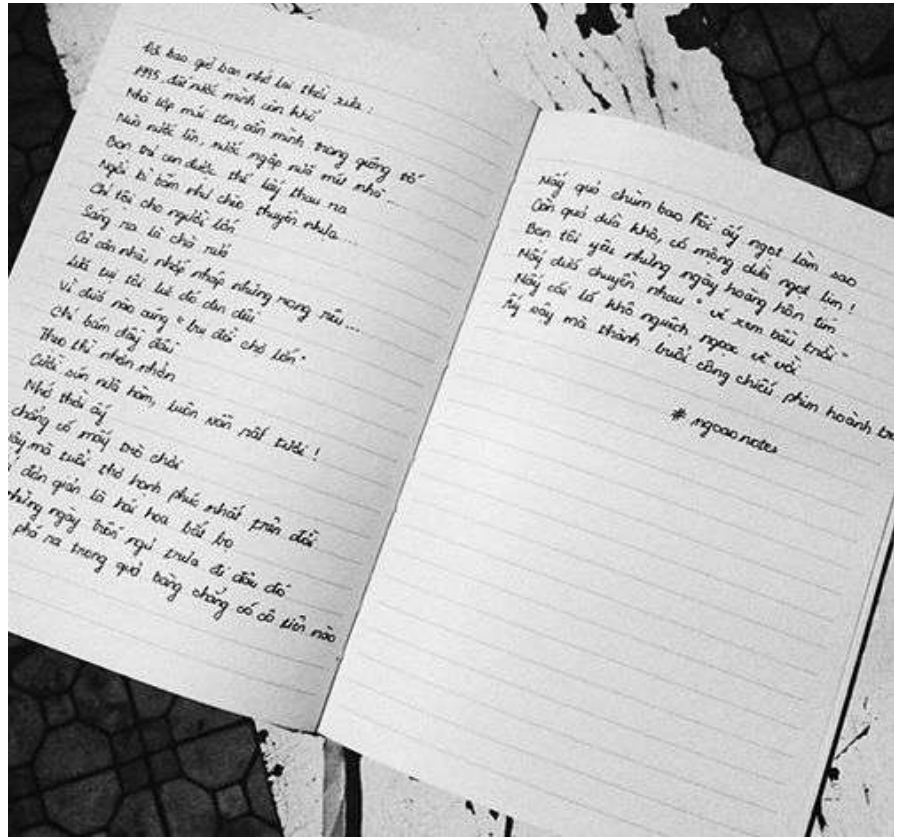 Có bao giờ bạn nhớ lại thời xưa :
1995, đất nước mình còn khó
Nhà lợp mái tôn, oằn mình trong giông tố
Nửa nước lên, nước ngập nửa mái nhà ...
Bọn trẻ con được thể lấy thau ra
Ngồi bì bõm như chèo thuyền nhựa ...
Chỉ tội cho người lớn
Sáng ra là chà rửa
Cả căn nhà nhấp nháp những rong rêu ...
Lứa tụi tôi lúc đó đen đều
Vì đứa nào cũng " bụi đời chợ lớn "
Chí bám đầy đầu
Theo thì nhớn nhởn
Cười sún nửa hàm, luôn vẫn rất tươi !
Nhớ thời ấy
chẳng có mấy trò chơi
mà tuổi thơ hạnh phúc nhất trên đời
đơn giản là hái hoa bắt bọ
những ngày trốn ngủ trưa đi đâu đó
phá ra trong quả bàng chẳng có cô tiên nào
Mấy quả chùm bao hồi ấy ngọt làm sao
Còn quả dừa khô, có mộng dừa ngọt lịm !
Bọn tôi yêu những ngày hoàng hôn tím
Mấy đứa chuyền nhau " vé xem bầu trời "
Mấy cái lá khô nguệch ngoạc vẽ vời
Ấy vậy mà thành buổi công chiếu phim hoành
# ngoaonotes